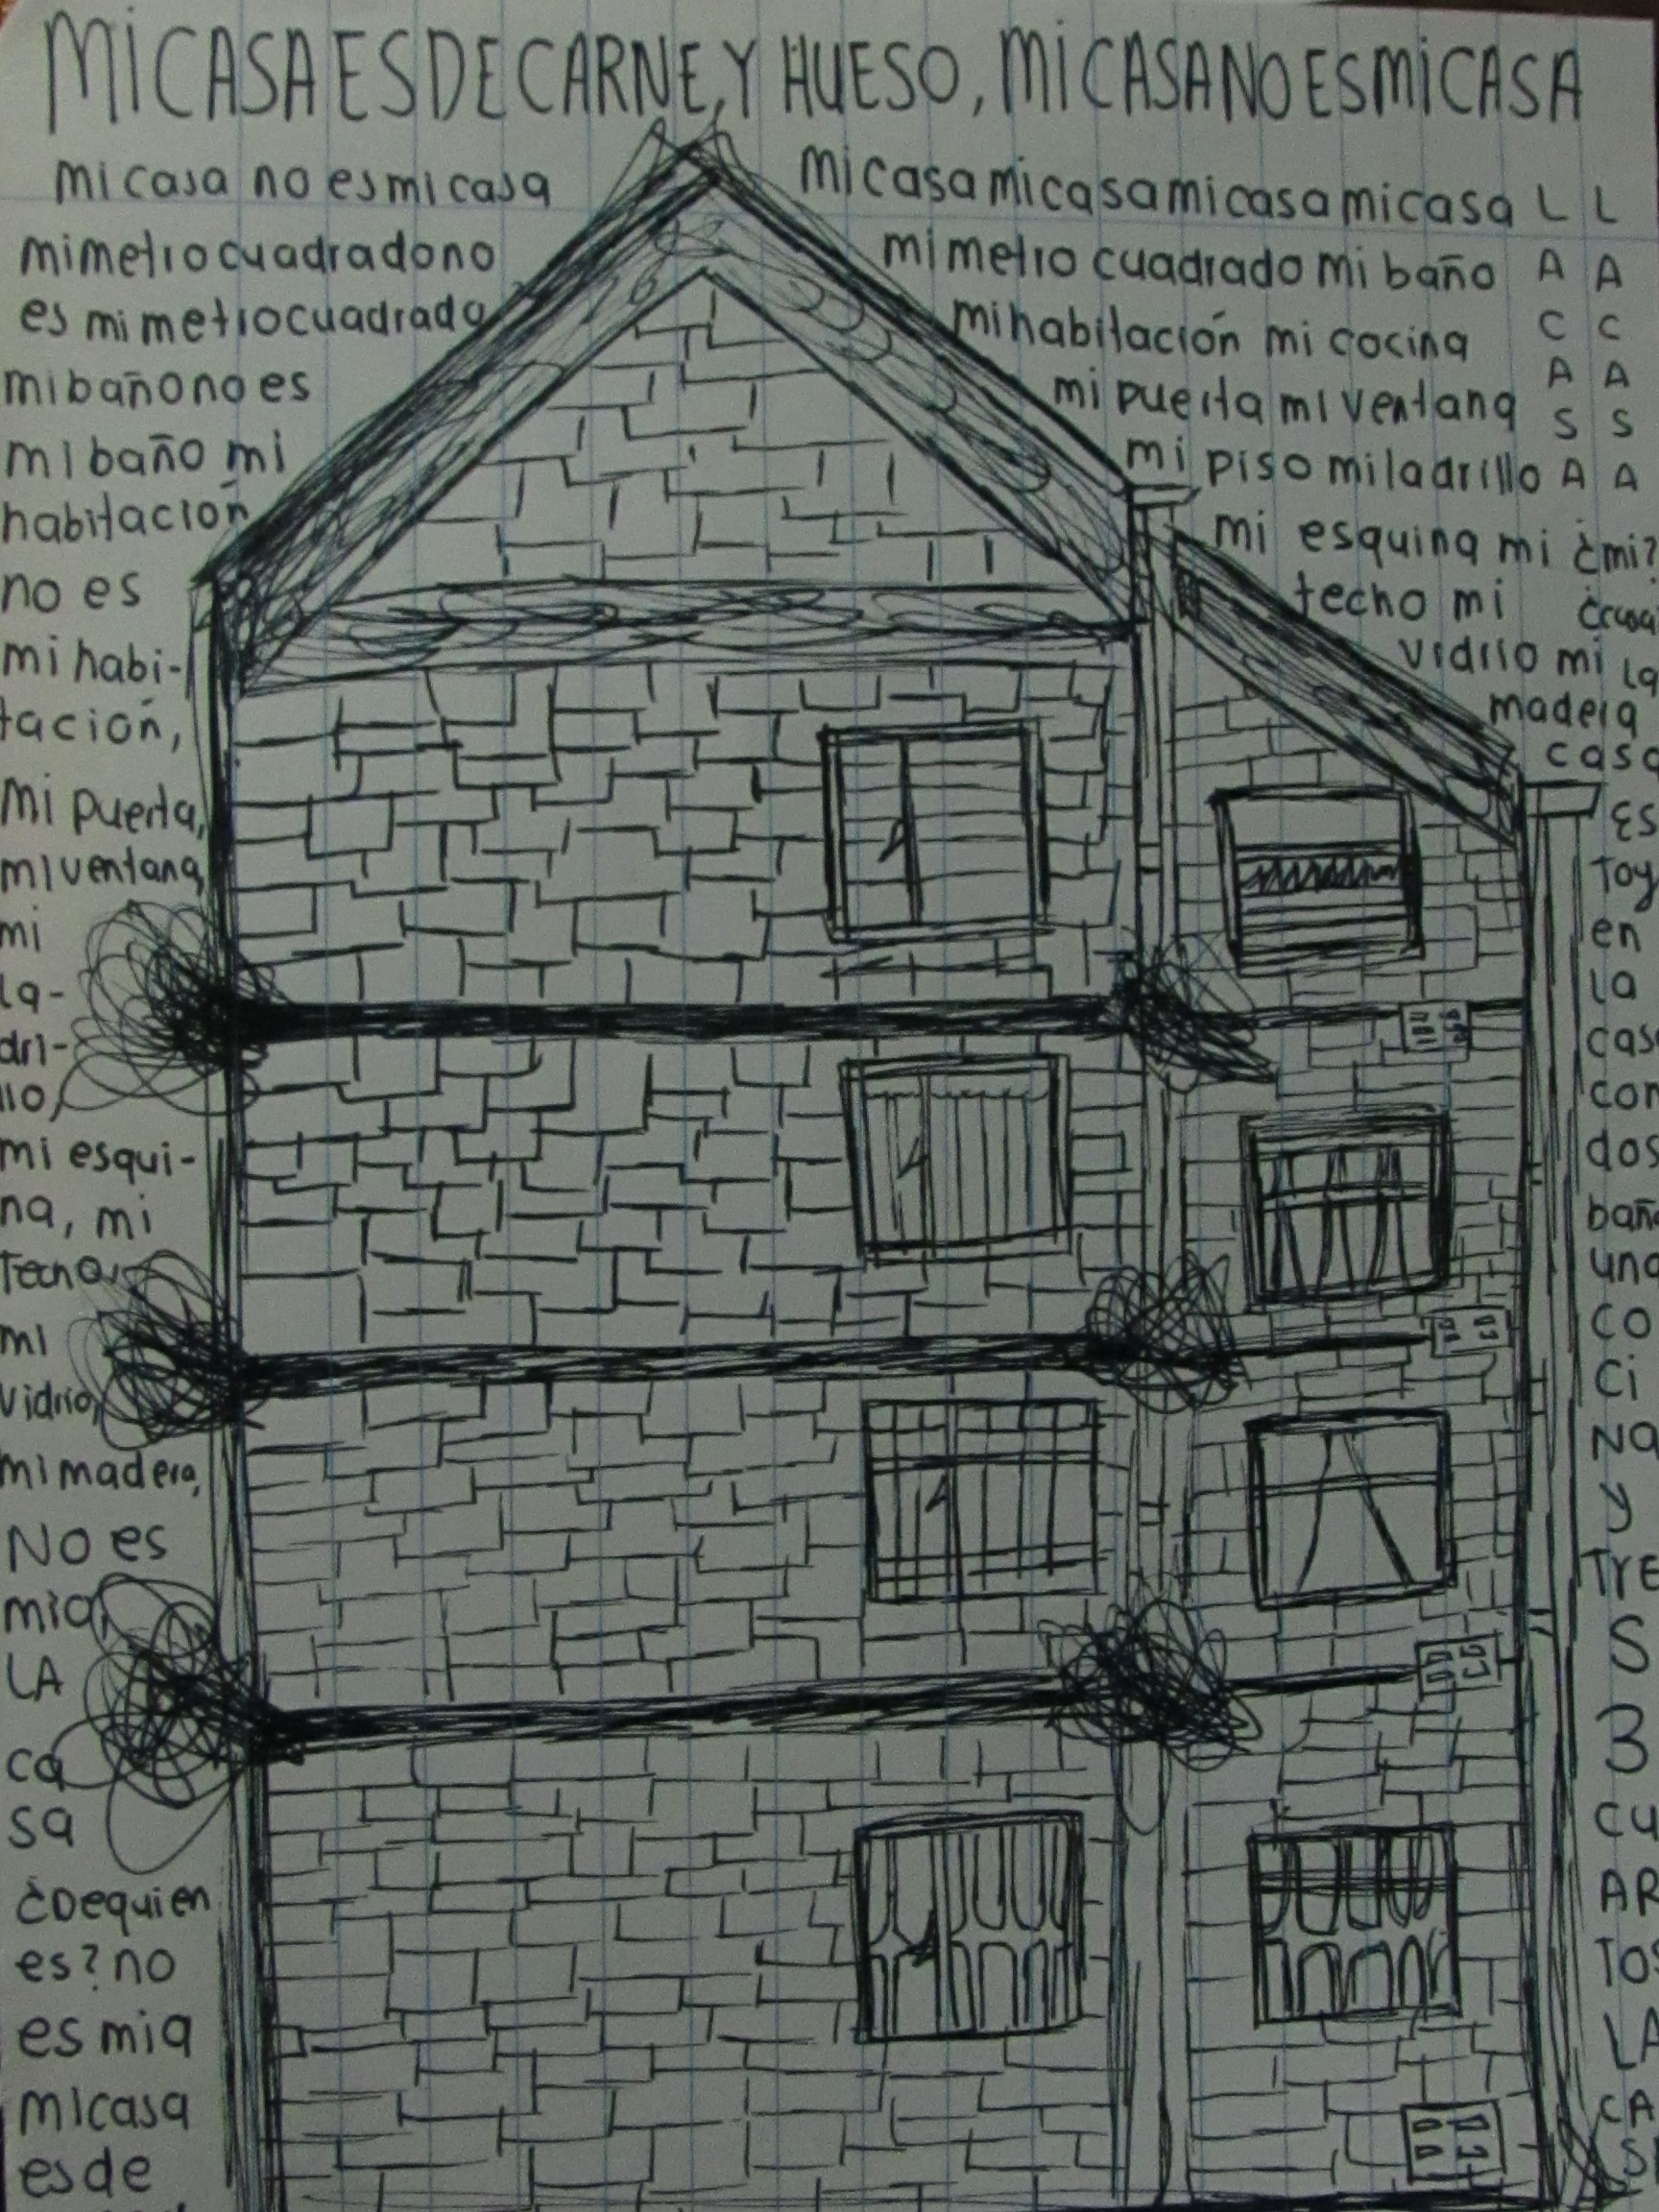 MI CASA ES DE CARNE, Y HUESO, MI CASA NO ES MI CASA
mi casa no es mi casa
mi metro cuadrado no
es mi metro cuadrado
mi baño no es
mi baño mi
habitación
no es
mi habi-
tación,
mi puerta,
mi ventana,
mi
la-
dri-
llo,
mi esqui-
na, mi
Techo,
mi
vidrio,
mi madera,
NO es
mia,
LA
ca
sa
¿De quien
es? no
es mia
mi casa
es de
mi casa mi casa mi casa mi casa
mi metro cuadrado mi baño
mi habitación mi cocina
mi puerta mi ventana
mi piso mi ladrillo
mi esquina mi
techo mi
vidrio mi
madera
L L
A A
C C
A A
S S
A A
¿mi?
la
Es
Toy
en
la
con
dos
CO
Ci
Na
y
Tre
S
3
CU
AR
TOS
LA
CA